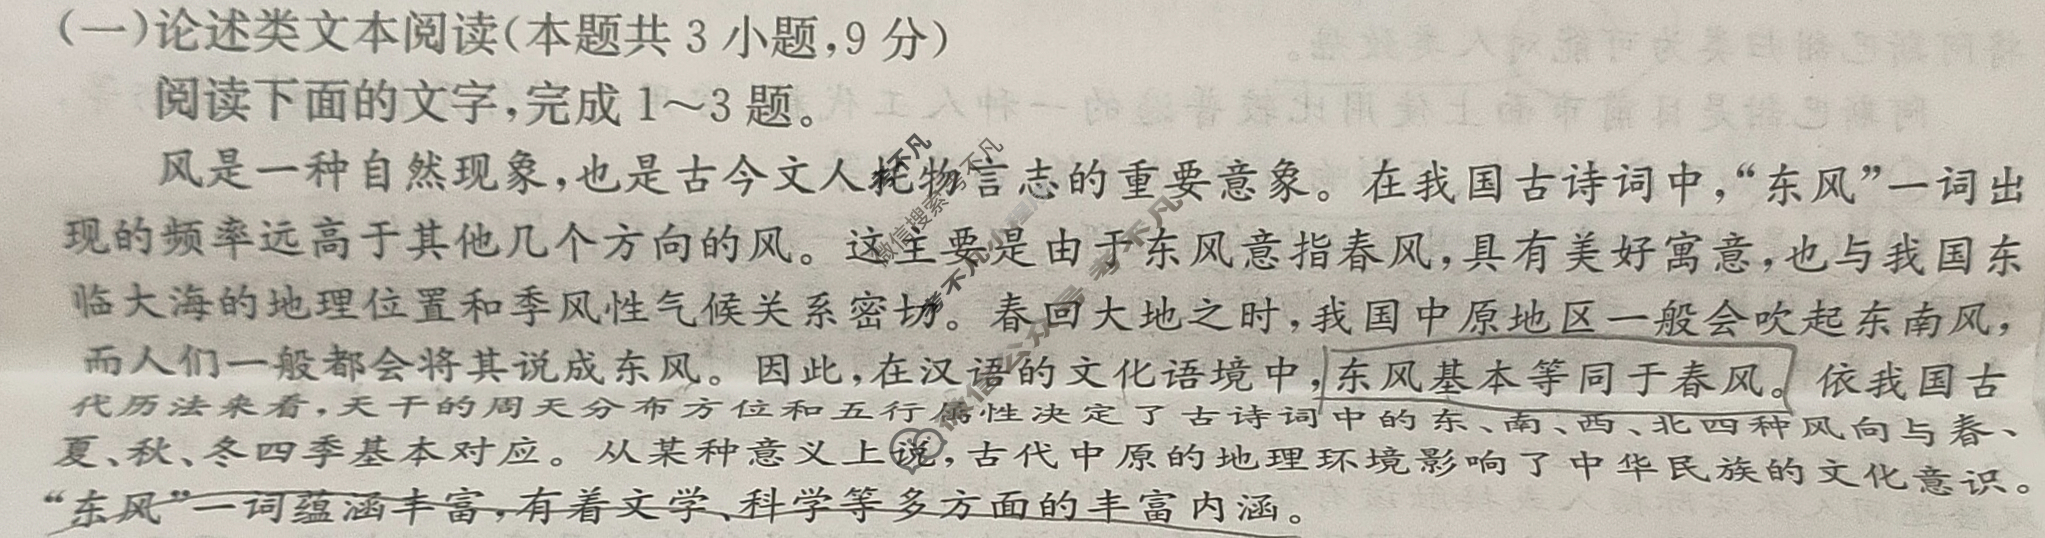 （一）论述类文本阅读（本题共 3 小题，9 分）
阅读下面的文字，完成 1～3 题。
风是一种自然现象，也是古今文人托物言志的重要意象。在我国古诗词中，“东风”一词出
现的频率远高于其他几个方向的风。这主要是由于东风意指春风，具有美好寓意，也与我国东
临大海的地理位置和季风性气候关系密切。春回大地之时，我国中原地区一般会吹起东南风，
而人们一般都会将其说成东风。因此，在汉语的文化语境中，东风基本等同于春风。依我国古
代历法来看，天干的周天分布方位和五行属性决定了古诗词中的东、南、西、北四种风向与春、
夏、秋、冬四季基本对应。从某种意义上说，古代中原的地理环境影响了中华民族的文化意识。
“东风”一词蕴涵丰富，有着文学、科学等多方面的丰富内涵。